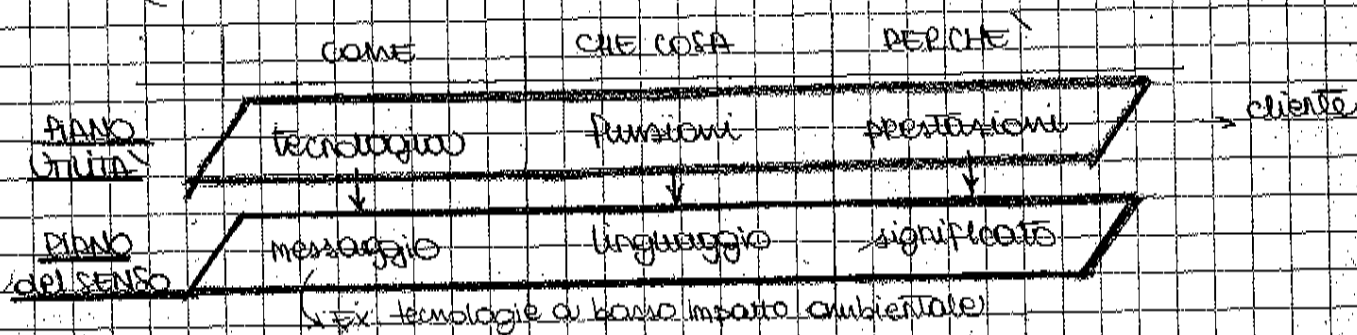 COME CHE COSA PERCHÉ
PIANO UTILITÀ tecnologia funzioni prestazioni → cliente
PIANO del SENSO messaggio linguaggio significato
EX. tecnologie a basso impatto ambientale